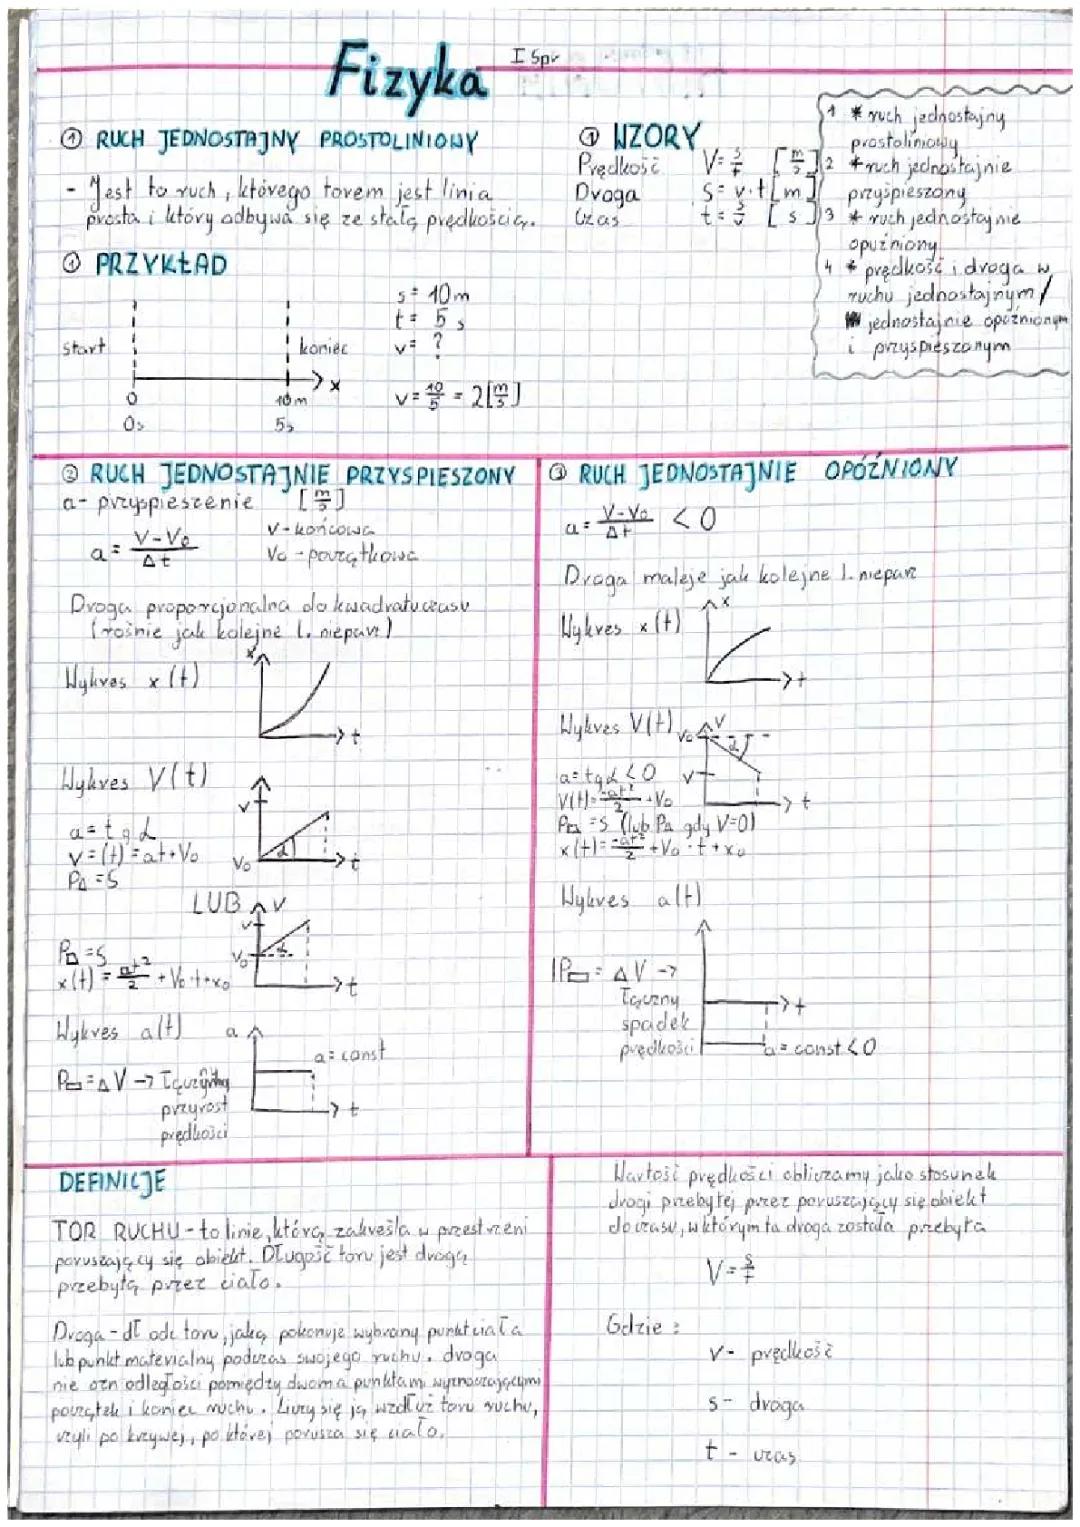 Fizyka
I Spr
① RUCH JEDNOSTAJNY PROSTOLINIOWY
- Jest to ruch, którego torem jest linia
prosta i który odbywa się ze stałą prędkością.
① WZORY
Prędkość V = s/t [m/s]
Droga S = v·t [m]
Czas t = s/v [s]
1 * ruch jednostajny
prostoliniowy
2 * ruch jednostajnie
przyśpieszony
3 * ruch jednostajnie
opuźniony
4 * prędkość i droga w
ruchu jednostajnym /
jednostajnie opóźnionym
i przyspieszonym
① PRZYKŁAD
start
koniec
x
0
10m
0s
5s
s = 10m
t = 5s
v = ?
v = 10/5 = 2[m/s]
② RUCH JEDNOSTAJNIE PRZYSPIESZONY
a - przyspieszenie [m/s]
a = V-V₀/Δt
V - końcowa
V₀ - początkowa
Droga proporcjonalna do kwadratu czasu
(rośnie jak kolejne l. niepar.)
Wykres x(t)
x
t
Wykres V(t)
a = tgα
v = (t) = at+V₀
P△ = S
v
V₀
α
t
LUB
V
v
V₀
α
t
P = S
x(t) = at²/2 + V₀·t+x₀
Wykres a(t)
a
a = const
t
P▭ = ΔV →
przyrost
prędkości
③ RUCH JEDNOSTAJNIE OPÓŹNIONY
a = V-V₀/Δt < 0
Droga maleje jak kolejne l. niepar
Wykres x(t)
x
t
Wykres V(t)
V
V₀
α
v
t
a = tgα < 0
V(t) = -at²/2 + V₀
P = S (lub P△ gdy V=0)
x(t) = -at²/2 + V₀·t + x₀
Wykres a(t)
|P▭ = ΔV →
Łączny
spadek
prędkości
t
a = const < 0
DEFINICJE
TOR RUCHU - to linie, którą zakreśla w przestrzeni
poruszający się obiekt. Długość toru jest drogą
przebytą przez ciało.
Droga - dł odc toru, jaką pokonuje wybrany punkt ciała
lub punkt materialny podczas swojego ruchu. droga
nie ozn odległości pomiędzy dwoma punktami wyznaczającymi
początek i koniec ruchu. Liczy się ją wzdłuż toru ruchu,
czyli po krzywej, po której porusza się ciało.
Wartość prędkości obliczamy jako stosunek
drogi przebytej przez poruszający się obiekt
do czasu, w którym ta droga została przebyta
V = s/t
Gdzie :
v - prędkość
s - droga
t - czas